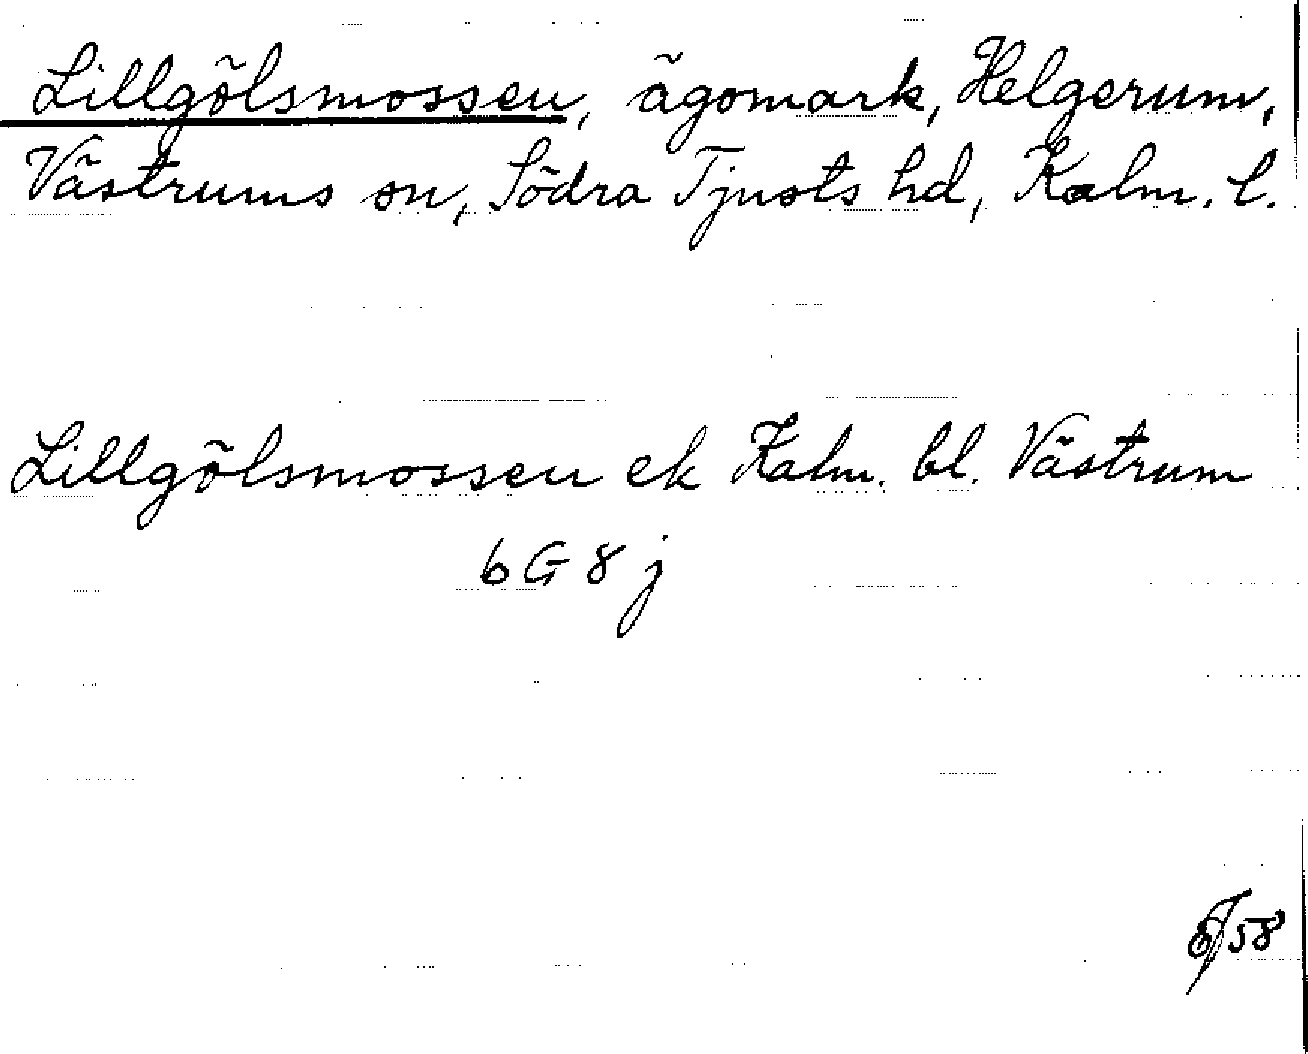 Lillgölsmossen, ägomark, Helgerum,
Västrums sn, Södra Tjusts hd, Kalm. l.
Lillgölsmossen ek Kalm. bl. Västrum
6 G 8 j
58